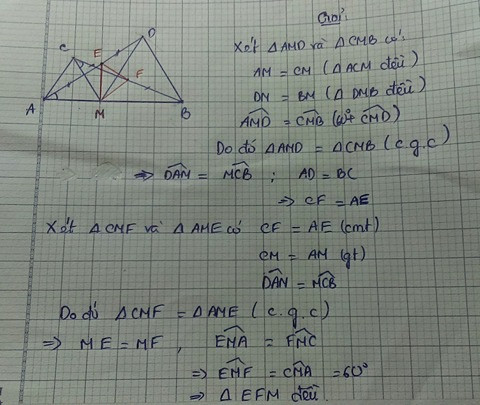 Giải:
C E D F A M B
Xét ΔAMD và ΔCMB có:
AM = CM (ΔACM đều)
DM = BM (Δ DMB đều)
$\widehat{AMD}$ = $\widehat{CMB}$ (60°+ $\widehat{CMD}$)
Do đó ΔAMD = ΔCMB (c.g.c)
⇒ $\widehat{DAM}$ = $\widehat{MCB}$ ; AD = BC
⇒ CF = AE
Xét ΔCMF và ΔAME có CF = AE (cmt)
CM = AM (gt)
$\widehat{DAM}$ = $\widehat{MCB}$
Do đó ΔCMF = ΔAME (c.g.c)
⇒ ME = MF , $\widehat{EMA}$ = $\widehat{FMC}$
⇒ $\widehat{EMF}$ = $\widehat{CMA}$ = 60°
⇒ Δ EFM đều.